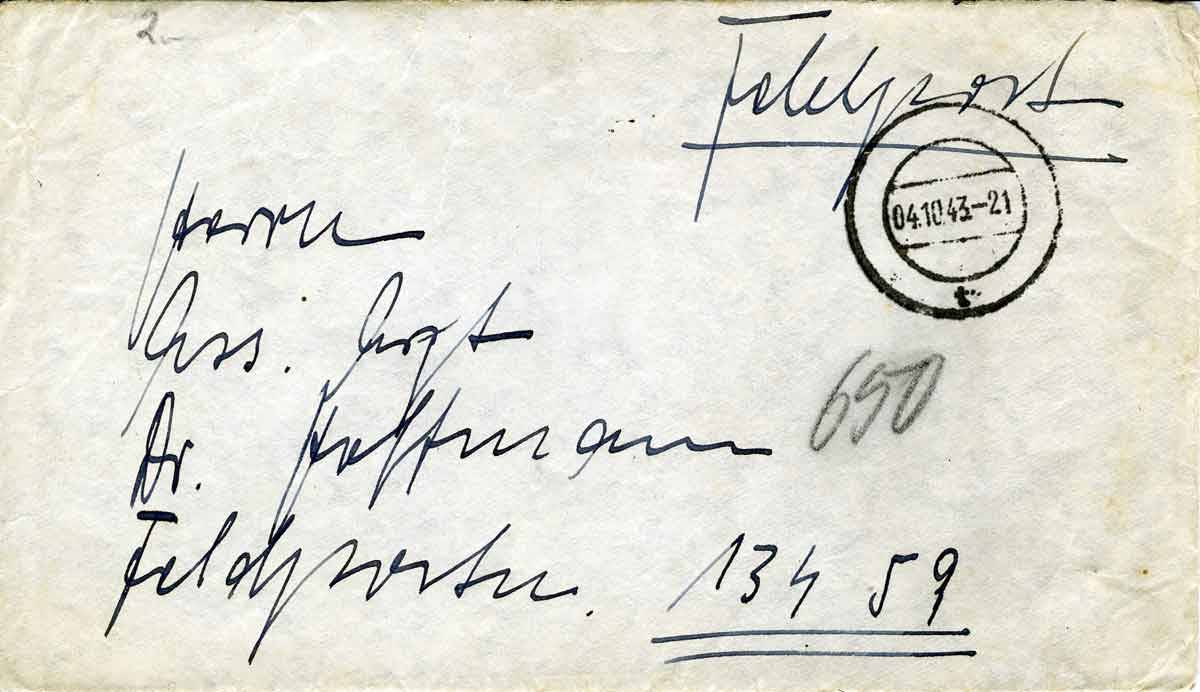 2.-
Feldpost
04.10.43-21
t
Herrn
Ass. Arzt
Dr. Hoffmann
650
Feldpostn. 134 59